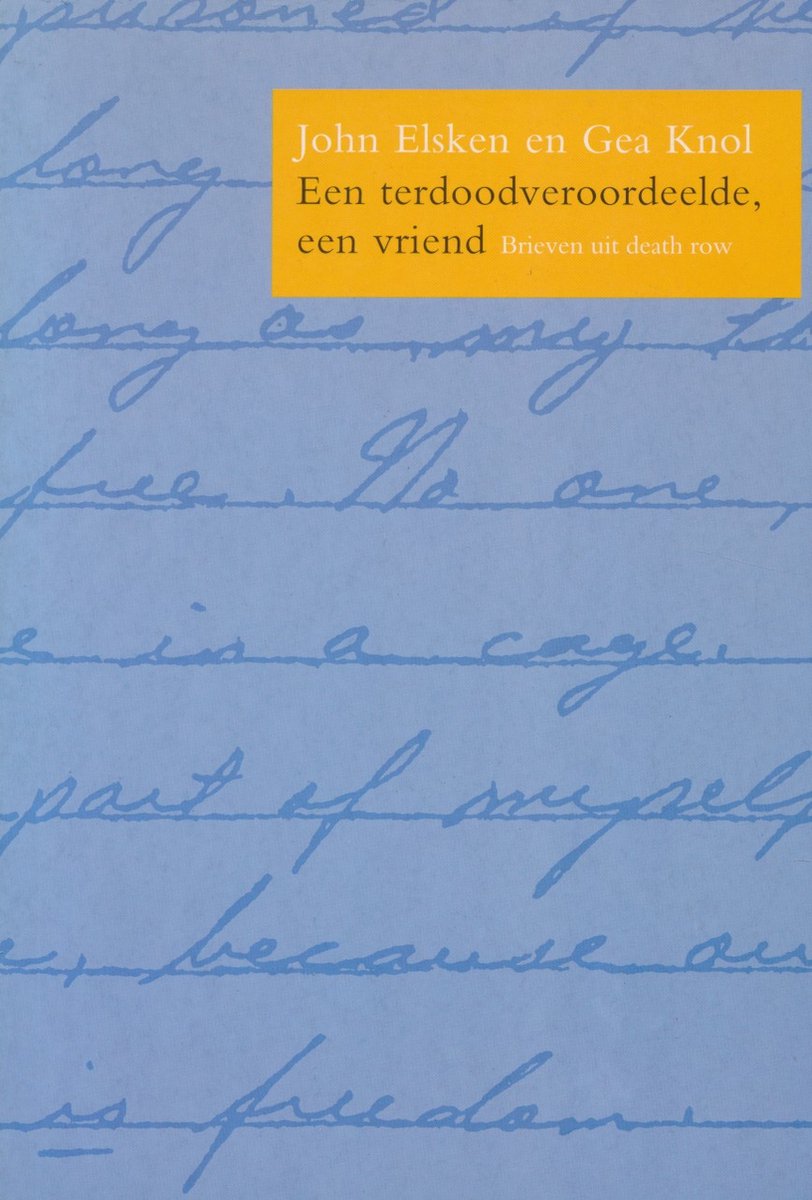 long
John Elsken en Gea Knol
Een terdoodveroordeelde,
een vriend Brieven uit death row
long as my
free. No one,
e is a cage.
part of myself
e, because ou
is freedom.